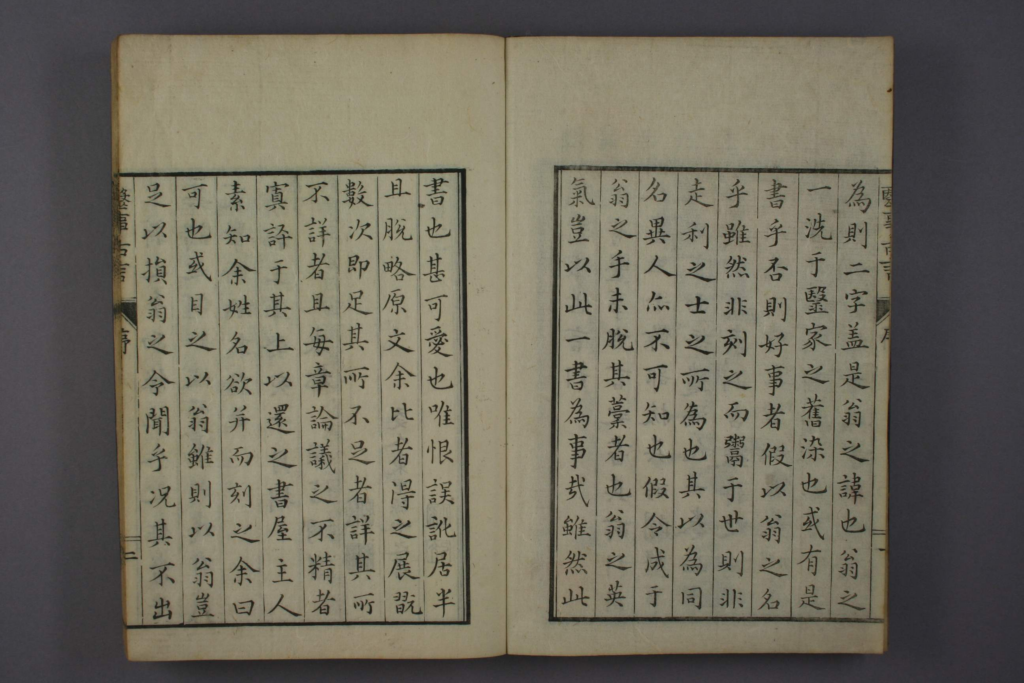 為則二字盖是翁之諱也翁之
一洗于毉家之舊染也或有是
書乎否則好事者假以翁之名
乎雖然非刻之而鬻于世則非
走利之士之所為也其以為同
名異人亦不可知也假令成于
翁之手未脫其藁者也翁之英
氣豈以此一書為事哉雖然此
書也甚可愛也唯恨誤訛居半
且脫略原文余比者得之展翫
數次即足其所不足者詳其所
不詳者且每章論議之不精者
寘評于其上以還之書屋主人
素知余姓名欲并而刻之余曰
可也或目之以翁雖則以翁豈
足以損翁之令聞乎况其不出
毉事古言
序
二